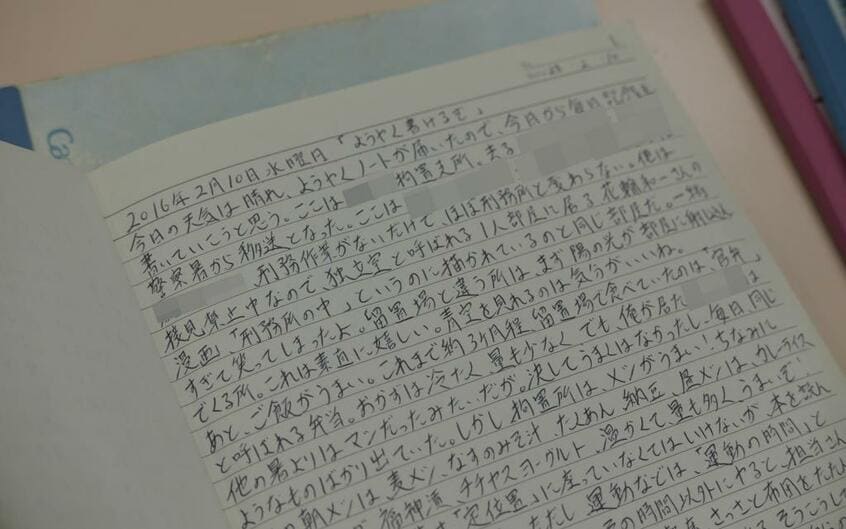 2016年2月10日 水曜日 「ようやく書けるぞ」
今日の天気は晴れ、ようやくノートが届いたので、今日から毎日
書いていこうと思う。ここは 拘置支所。去る
警察署から移送となった。ここは
刑務作業がないだけで ほぼ刑務所と変わらない。俺は
接見禁止中なので、独立室と呼ばれる1人部屋に居る 花輪和一さんの
漫画、「刑務所の中」というのに描かれているのと同じ部屋だ。一緒
すぎて笑ってしまったよ。留置場と違う所は、まず陽の光が部屋に
でくる所。これは素直に嬉しい。青空を見れるのは気分がいいね。
あと、ご飯がうまい。これまで約3ヶ月程 留置場で食べていたのは、「官弁」
と呼ばれる弁当。おかずは冷たく、量も少なく、でも、俺が居た は
他の署よりはマシだったみたいだが。決してうまくはなかったし、毎日、同じ
ようなものばかり出ていた。しかし 拘置所は、メシがうまい!ちなみに
朝メシは、麦メシ、なすのみそ汁、たくあん、納豆、昼メシは、カレライス
福神漬、チチヤスヨーグルト、温かくて、量も多く うまいぞ。
「定位置」に座っていなくてはいけないが、本を読ん
ただし 運動などでは、「運動の時間」と
の時間以外にやると、担当さん
さっさと布団をたたん